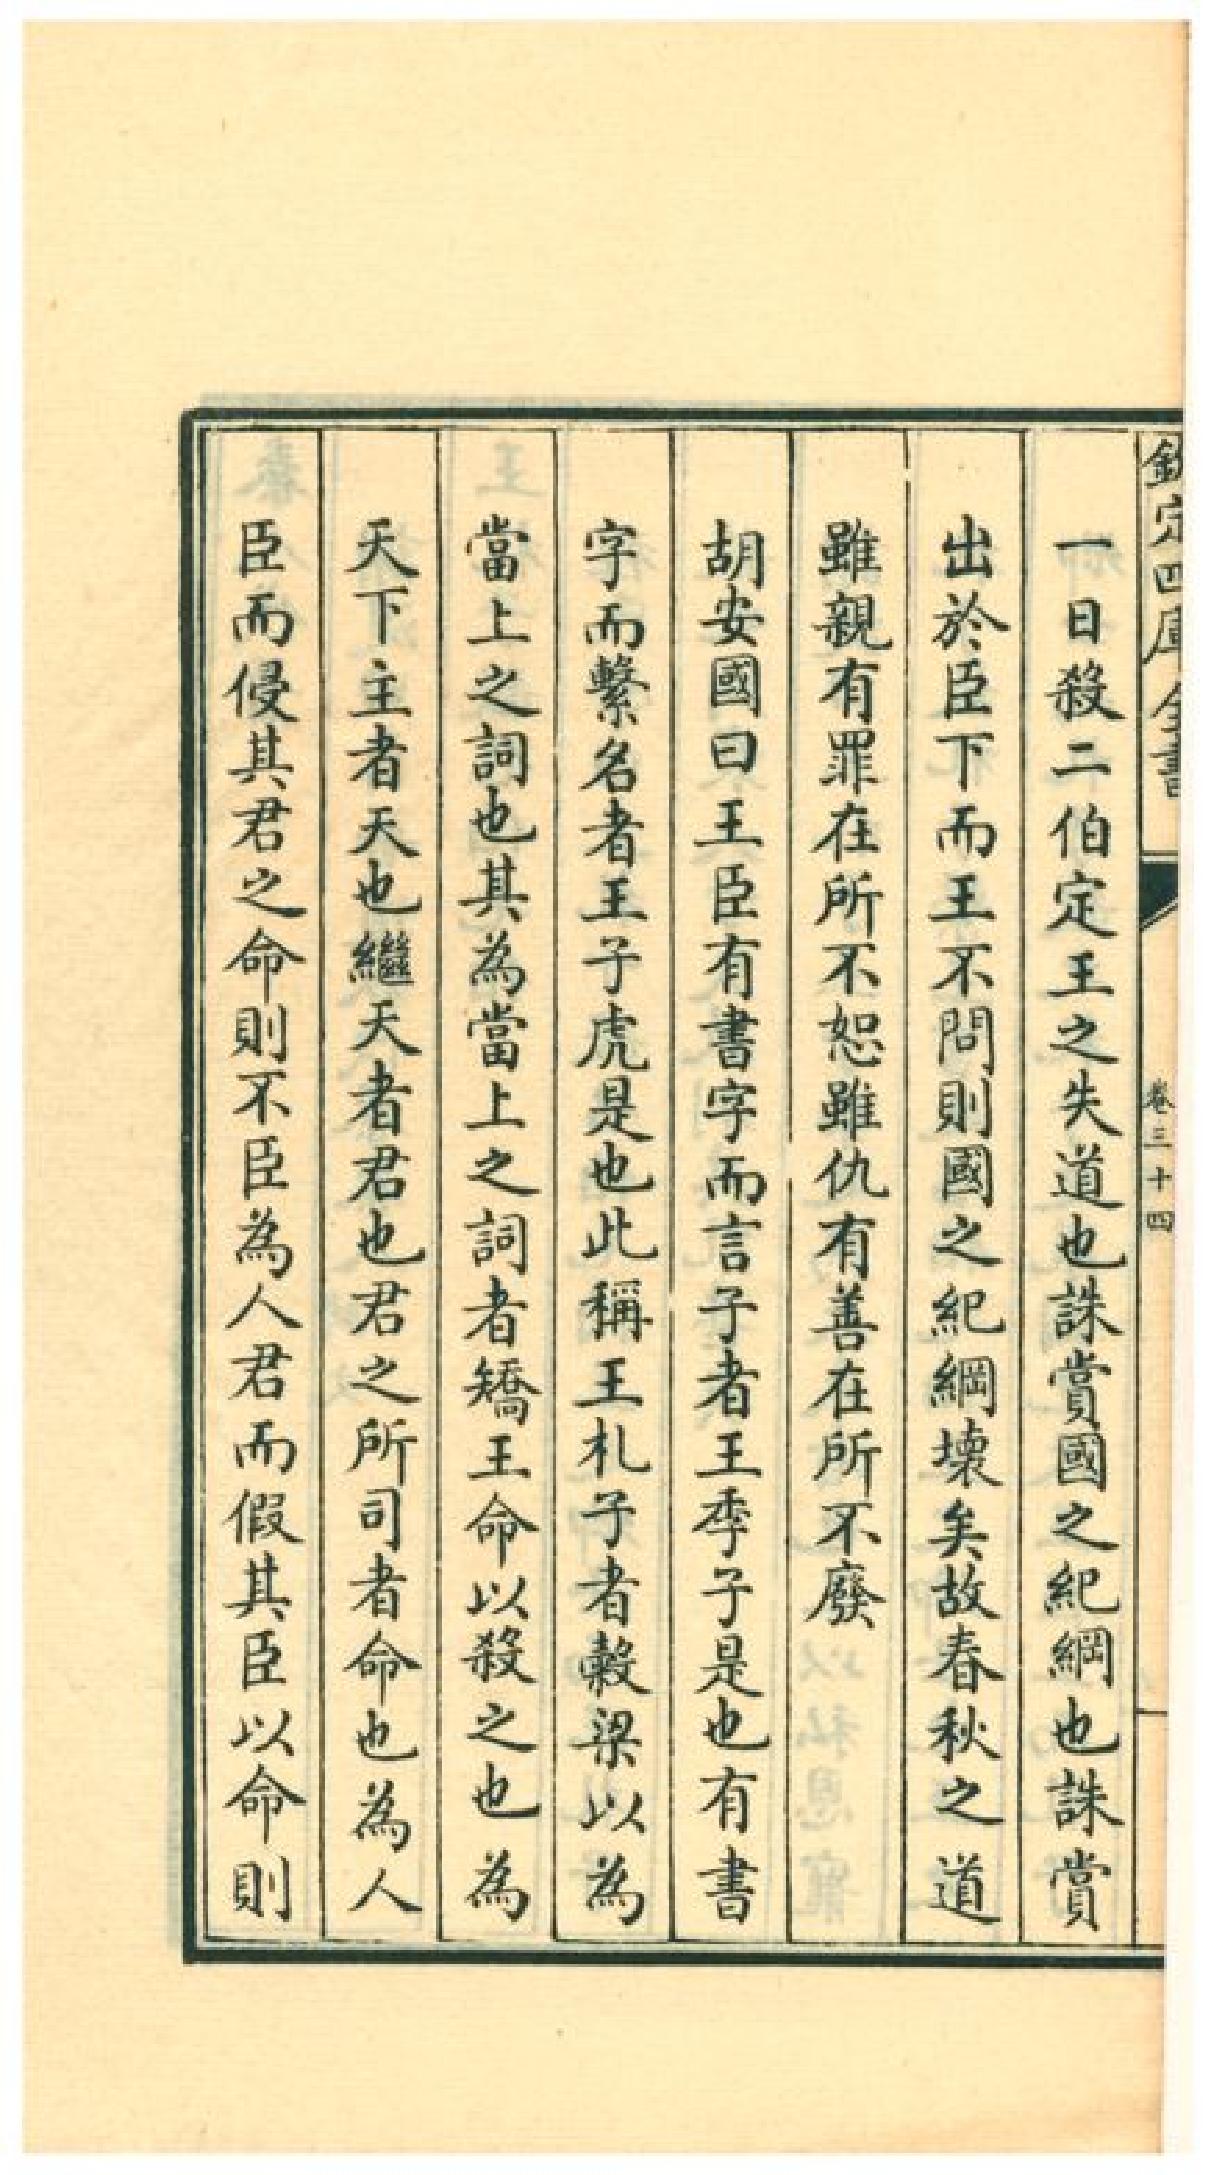 欽定四庫全書
卷三十四
一日殺二伯定王之失道也誅賞國之紀綱也誅賞
出於臣下而王不問則國之紀綱壊矣故春秋之道
雖親有罪在所不恕雖仇有善在所不廢
胡安國曰王臣有書字而言子者王季子是也有書
字而繫名者王子虎是也此稱王札子者榖梁以為
當上之詞也其為當上之詞者矯王命以殺之也為
天下主者天也繼天者君也君之所司者命也為人
臣而侵其君之命則不臣為人君而假其臣以命則